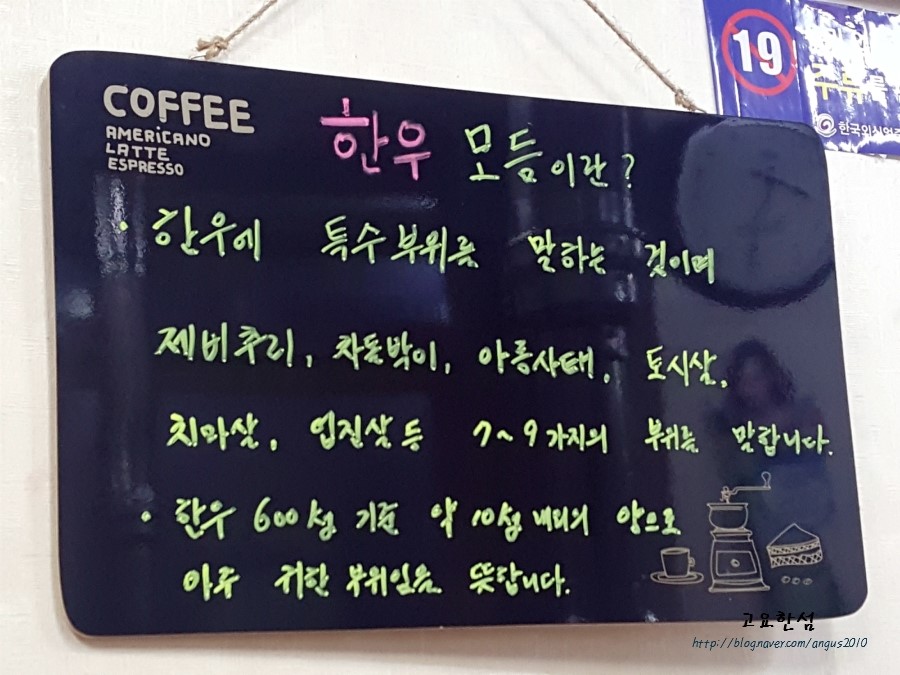 COFFEE
AMERICANO
LATTE
ESPRESSO
한우 모듬이란?
• 한우에 특수부위를 말하는 것이며
제비추리, 차돌박이, 아롱사태, 토시살,
치마살, 업진살 등 7~9가지의 부위를 말합니다.
• 한우 600kg 기준 약 10kg 내외의 양으로
아주 귀한 부위임을 뜻합니다.
19
한국외식업
고요한섬
http://blognaver.com/angus2010